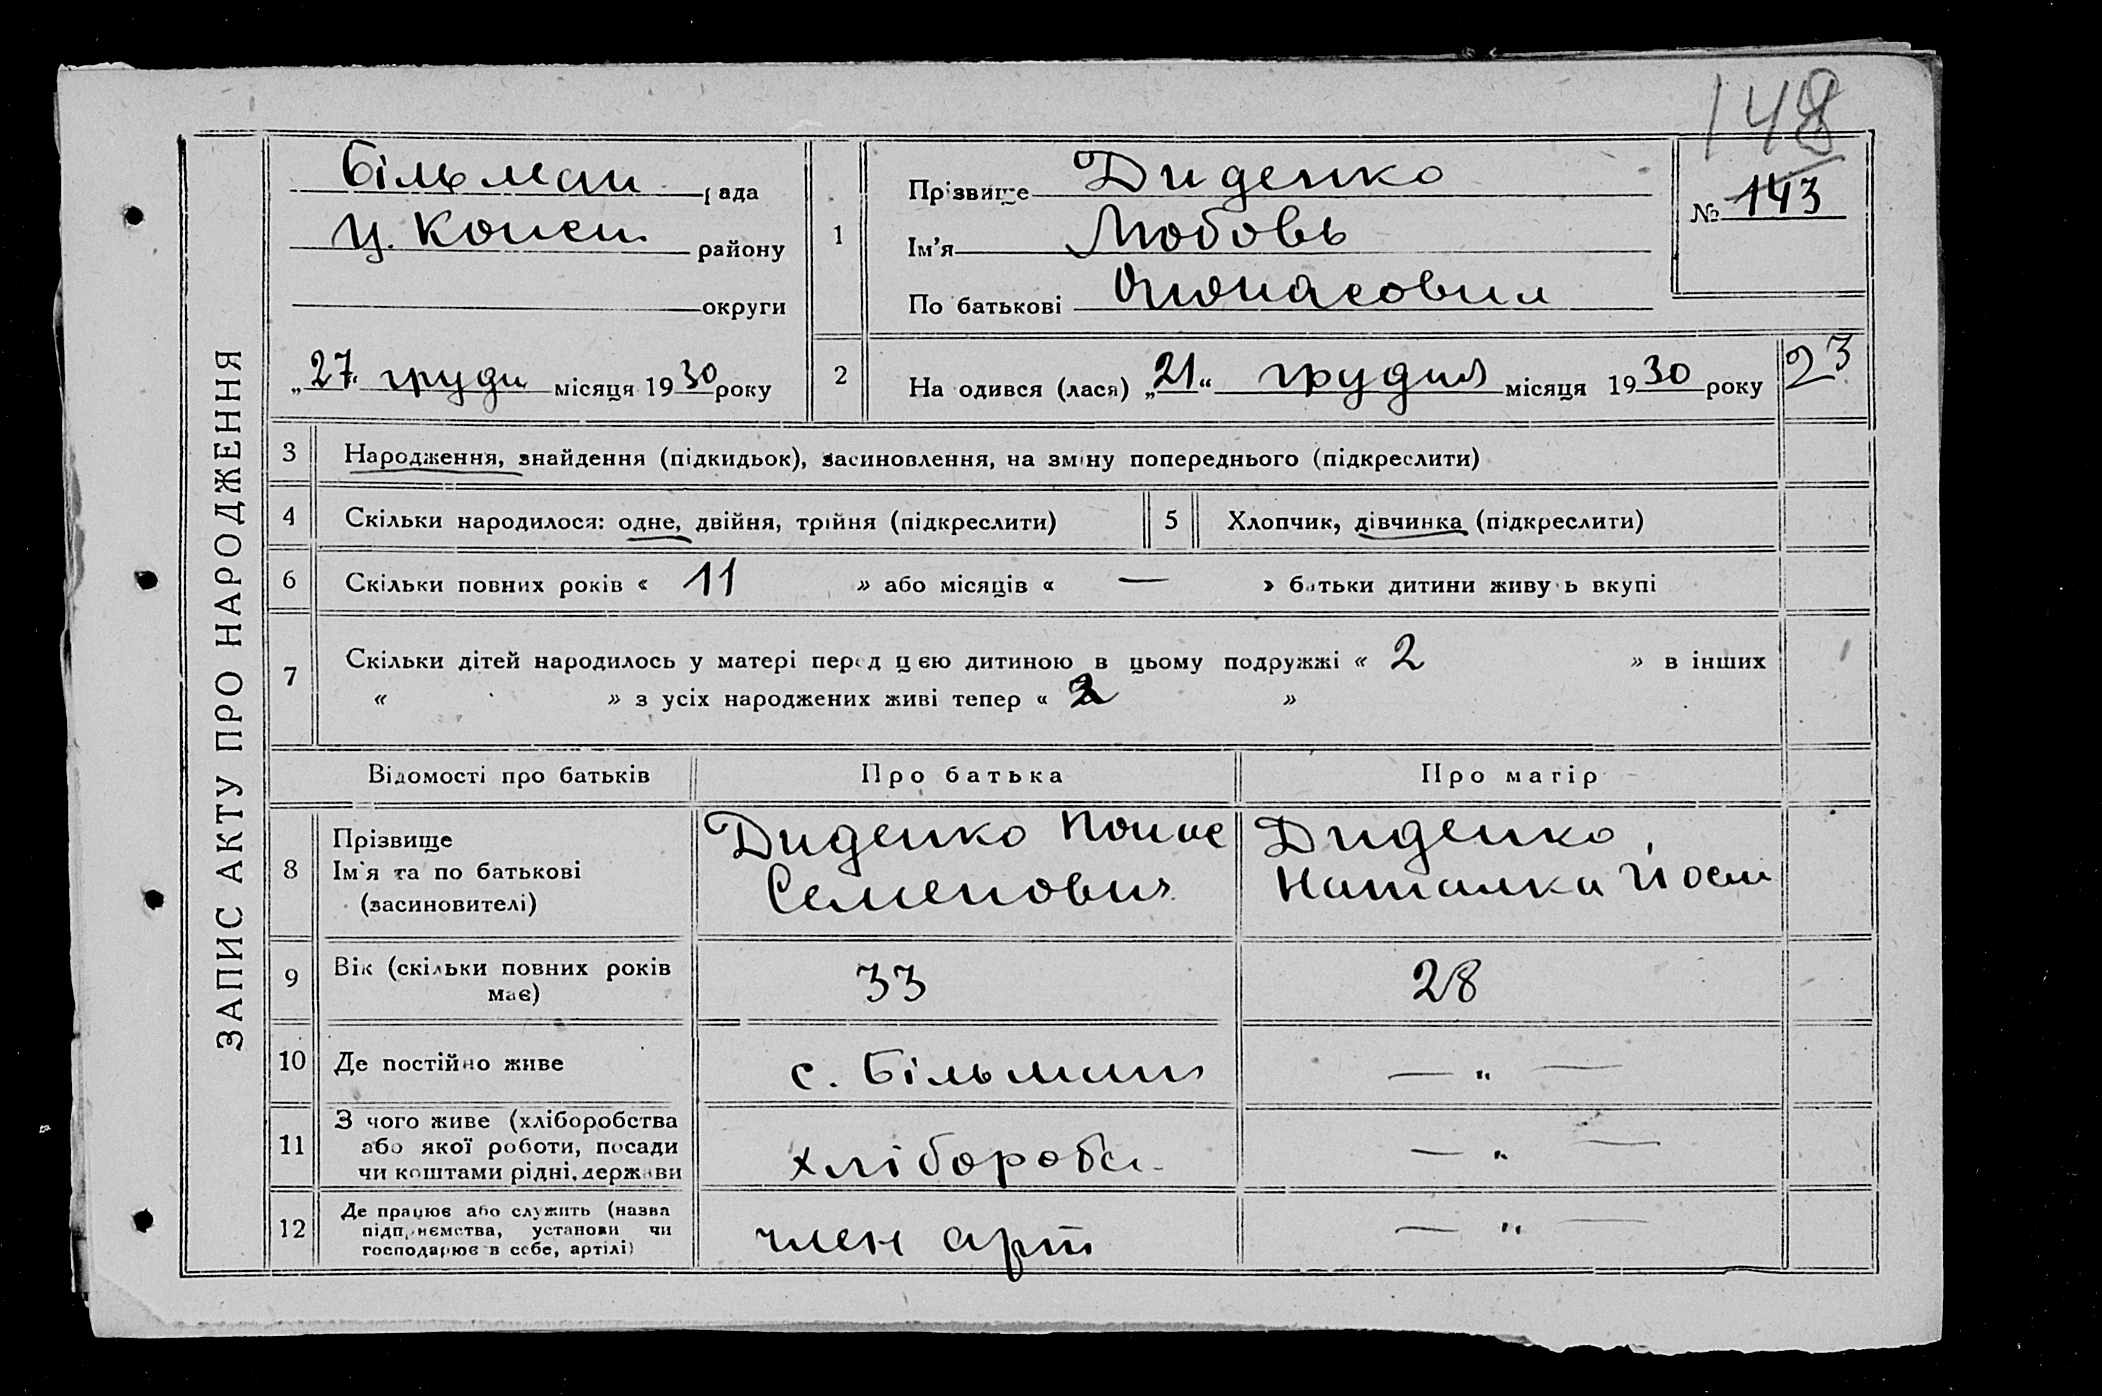 148
ЗАПИС АКТУ ПРО НАРОДЖЕННЯ
Більман рада
Ц. Конст. району
округи
„27“ грудн місяця 1930 року
1
Прізвище Диденко
Ім’я Любовь
По батькові
№ 143
2
На одився (лася) „21“ грудня місяця 1930 року
23
3 Народження, знайдення (підкидьок), засиновлення, на зміну попереднього (підкреслити)
4 Скільки народилося: одне, двійня, трійня (підкреслити)
5 Хлопчик, дівчинка (підкреслити)
6 Скільки повних років « 11 » або місяців « — » батьки дитини живуть вкупі
7 Скільки дітей народилось у матері перед цею дитиною в цьому подружжі « 2 » в інших
« » з усіх народжених живі тепер « 2 »
Відомості про батьків
Про батька
Про матір
8 Прізвище
Ім’я та по батькові
(засиновителі)
Диденко
Семенович
Диденко
Наталка Йосип
9 Вік (скільки повних років
має)
33
28
10 Де постійно живе
с. Більман
— „ —
11 З чого живе (хліборобства
або якої роботи, посади
чи коштами рідні, держави
хлібороб.
— „ —
12 Де працює або служить (назва
підприємства, установи чи
господарює в себе, артілі)
член арт
— „ —